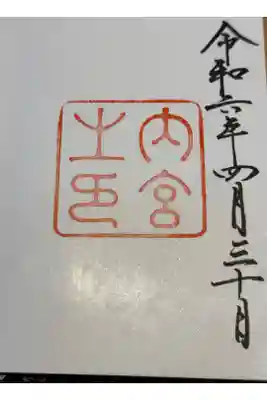 令和六年四月三十日
内宮
之印